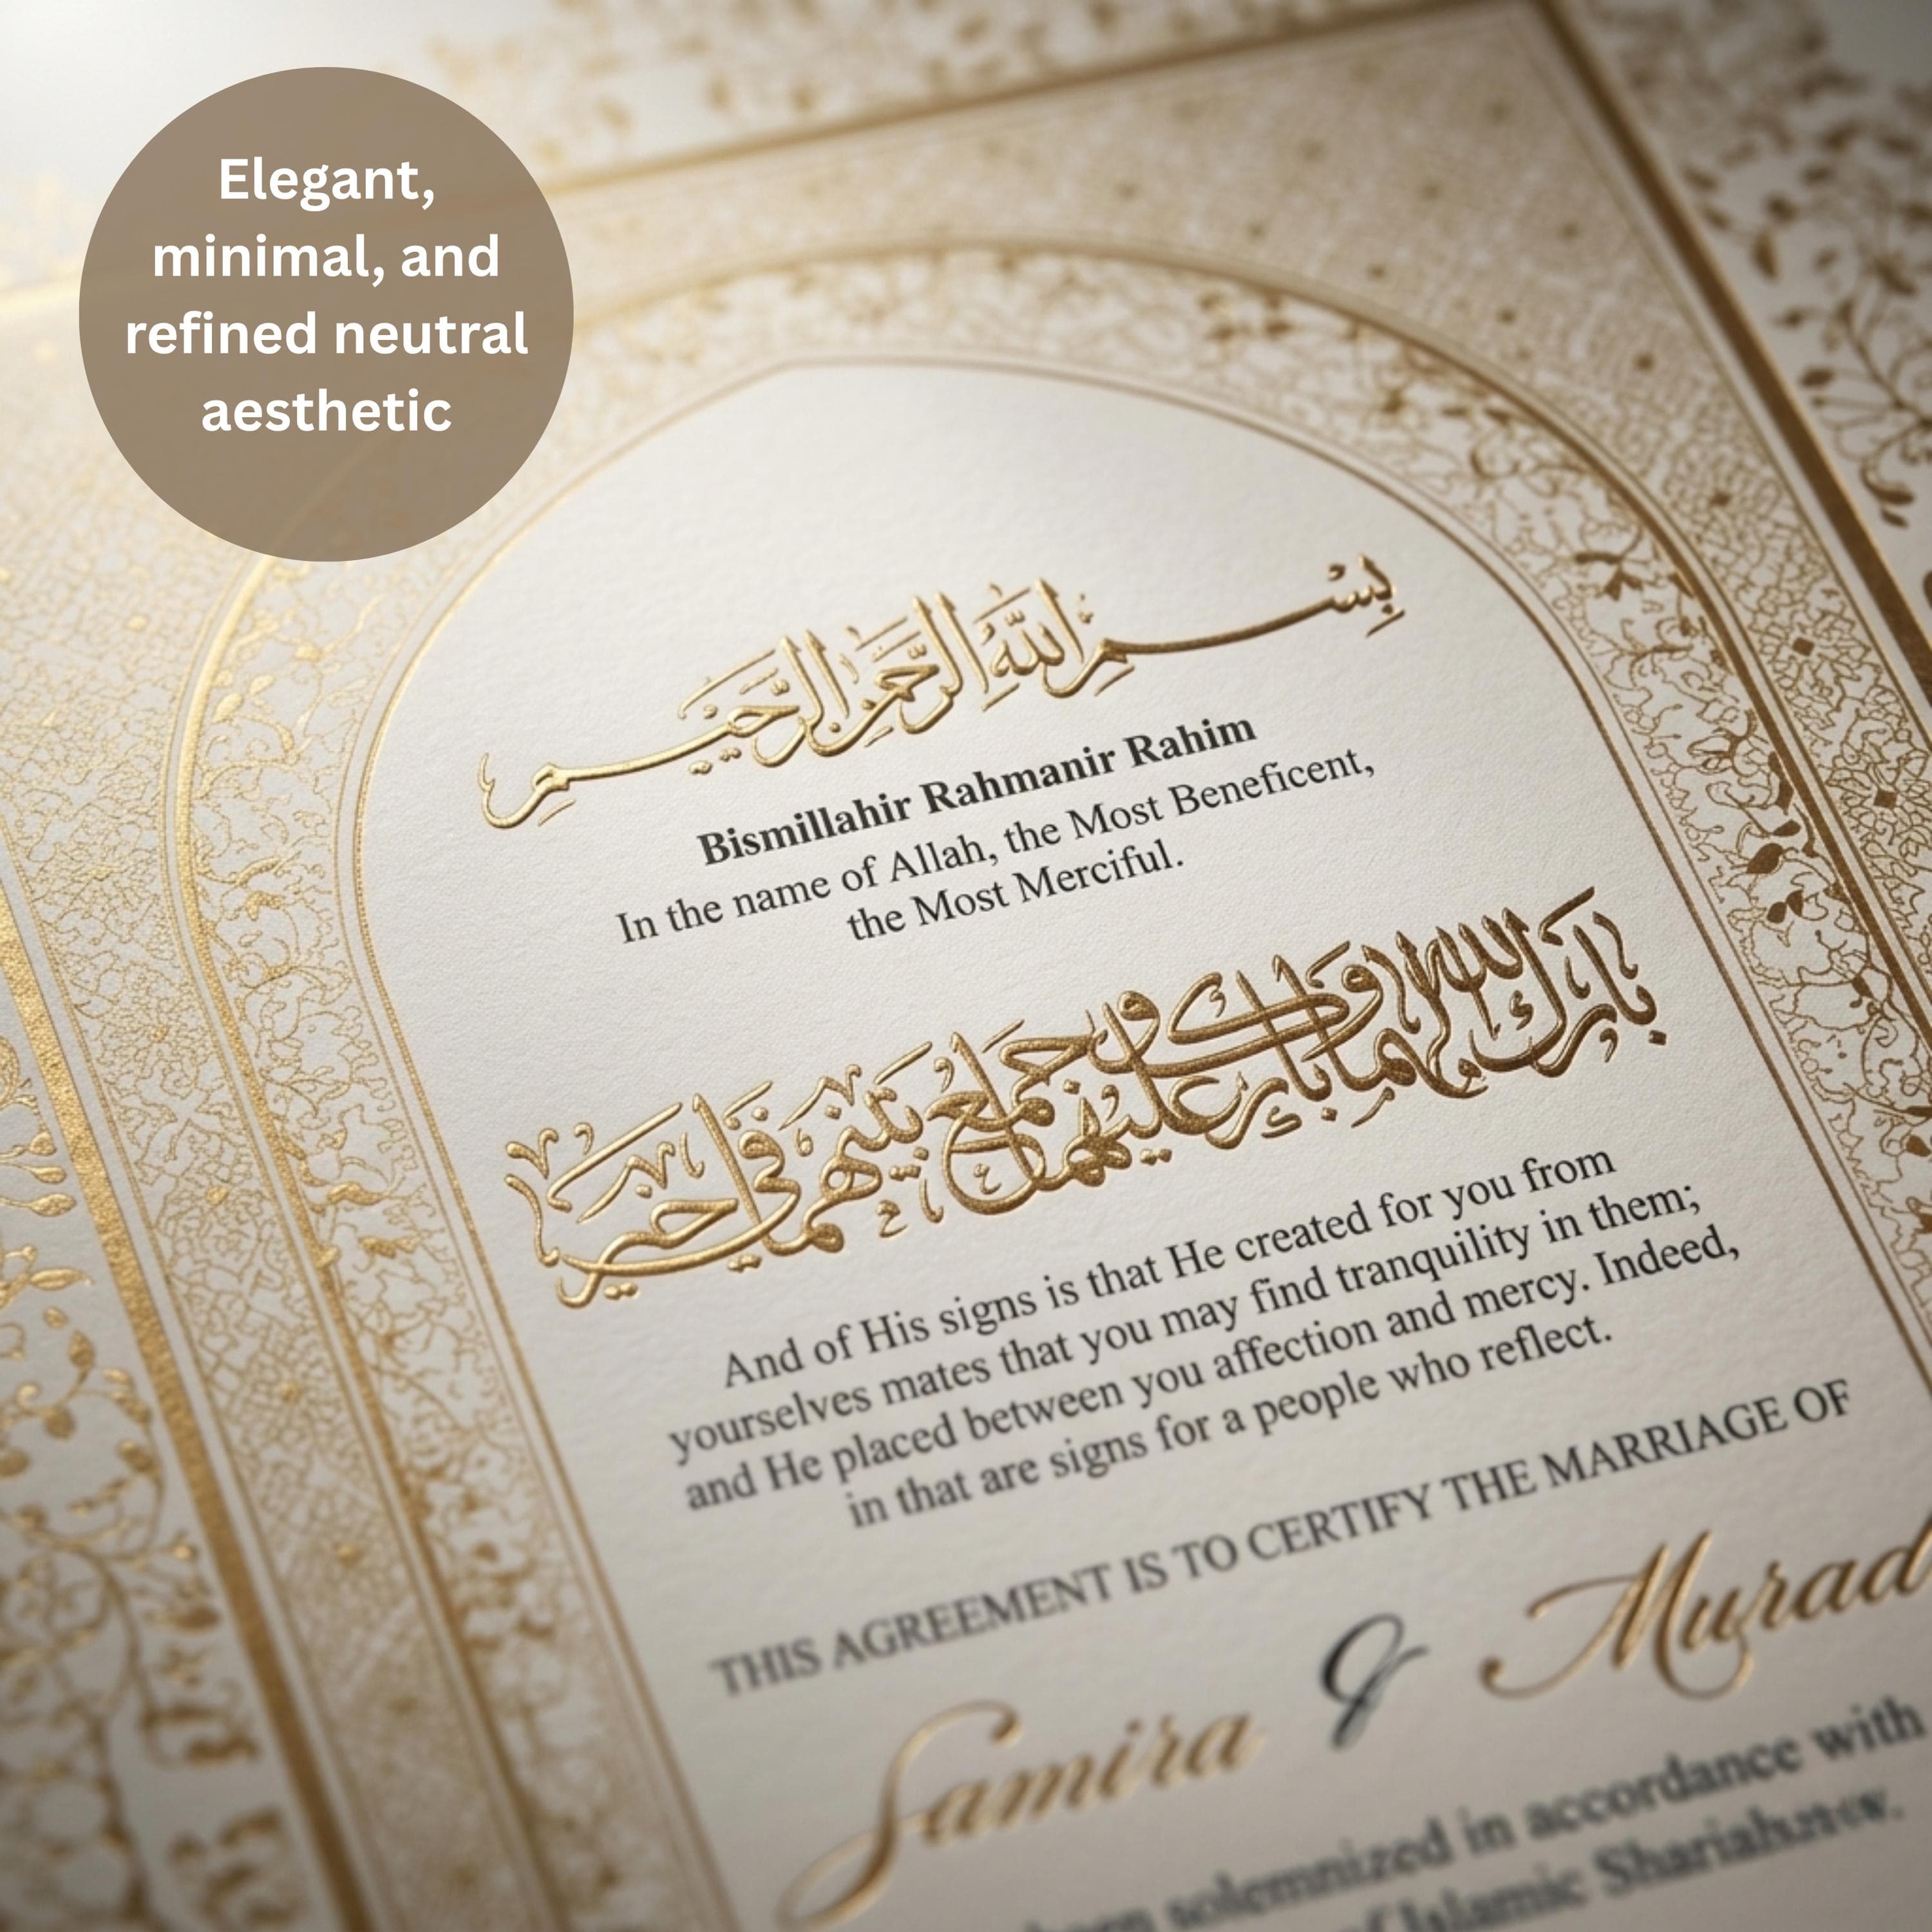 Elegant,
minimal, and
refined neutral
aesthetic
بسم الله الرحمن الرحيم
Bismillahir Rahmanir Rahim
In the name of Allah, the Most Beneficent,
the Most Merciful.
بارك الله لهما وبارك عليهما وجمع بينهما في خير
And of His signs is that He created for you from
yourselves mates that you may find tranquility in them;
and He placed between you affection and mercy. Indeed,
in that are signs for a people who reflect.
THIS AGREEMENT IS TO CERTIFY THE MARRIAGE OF
Samira & Murad
solemnized in accordance with
of Islamic